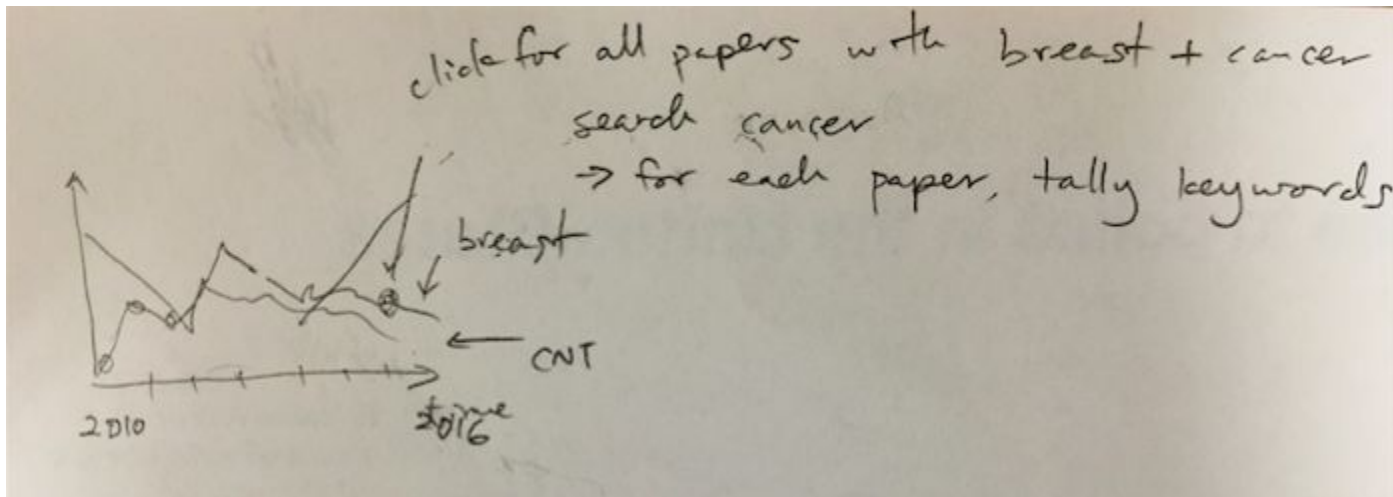 click for all papers with breast + cancer
search cancer
→ for each paper, tally keywords
breast
CNT
2010
time
2016